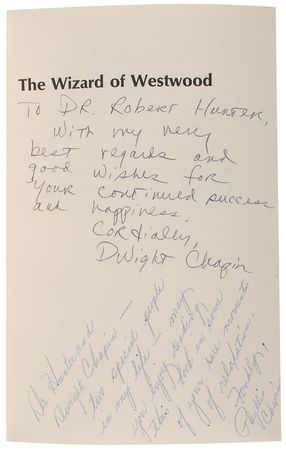 The Wizard of Westwood
To DR. Robert Hunter,
with my very
best regards and
good wishes for
your continued success
and happiness.
Cordially,
Dwight Chapin
Dr. Hunter and
Dwight Chapin —
two special people
in my life — may
you enjoy reading
this book in some
of your rare moments
of relaxation.
Fondly,
Chapin